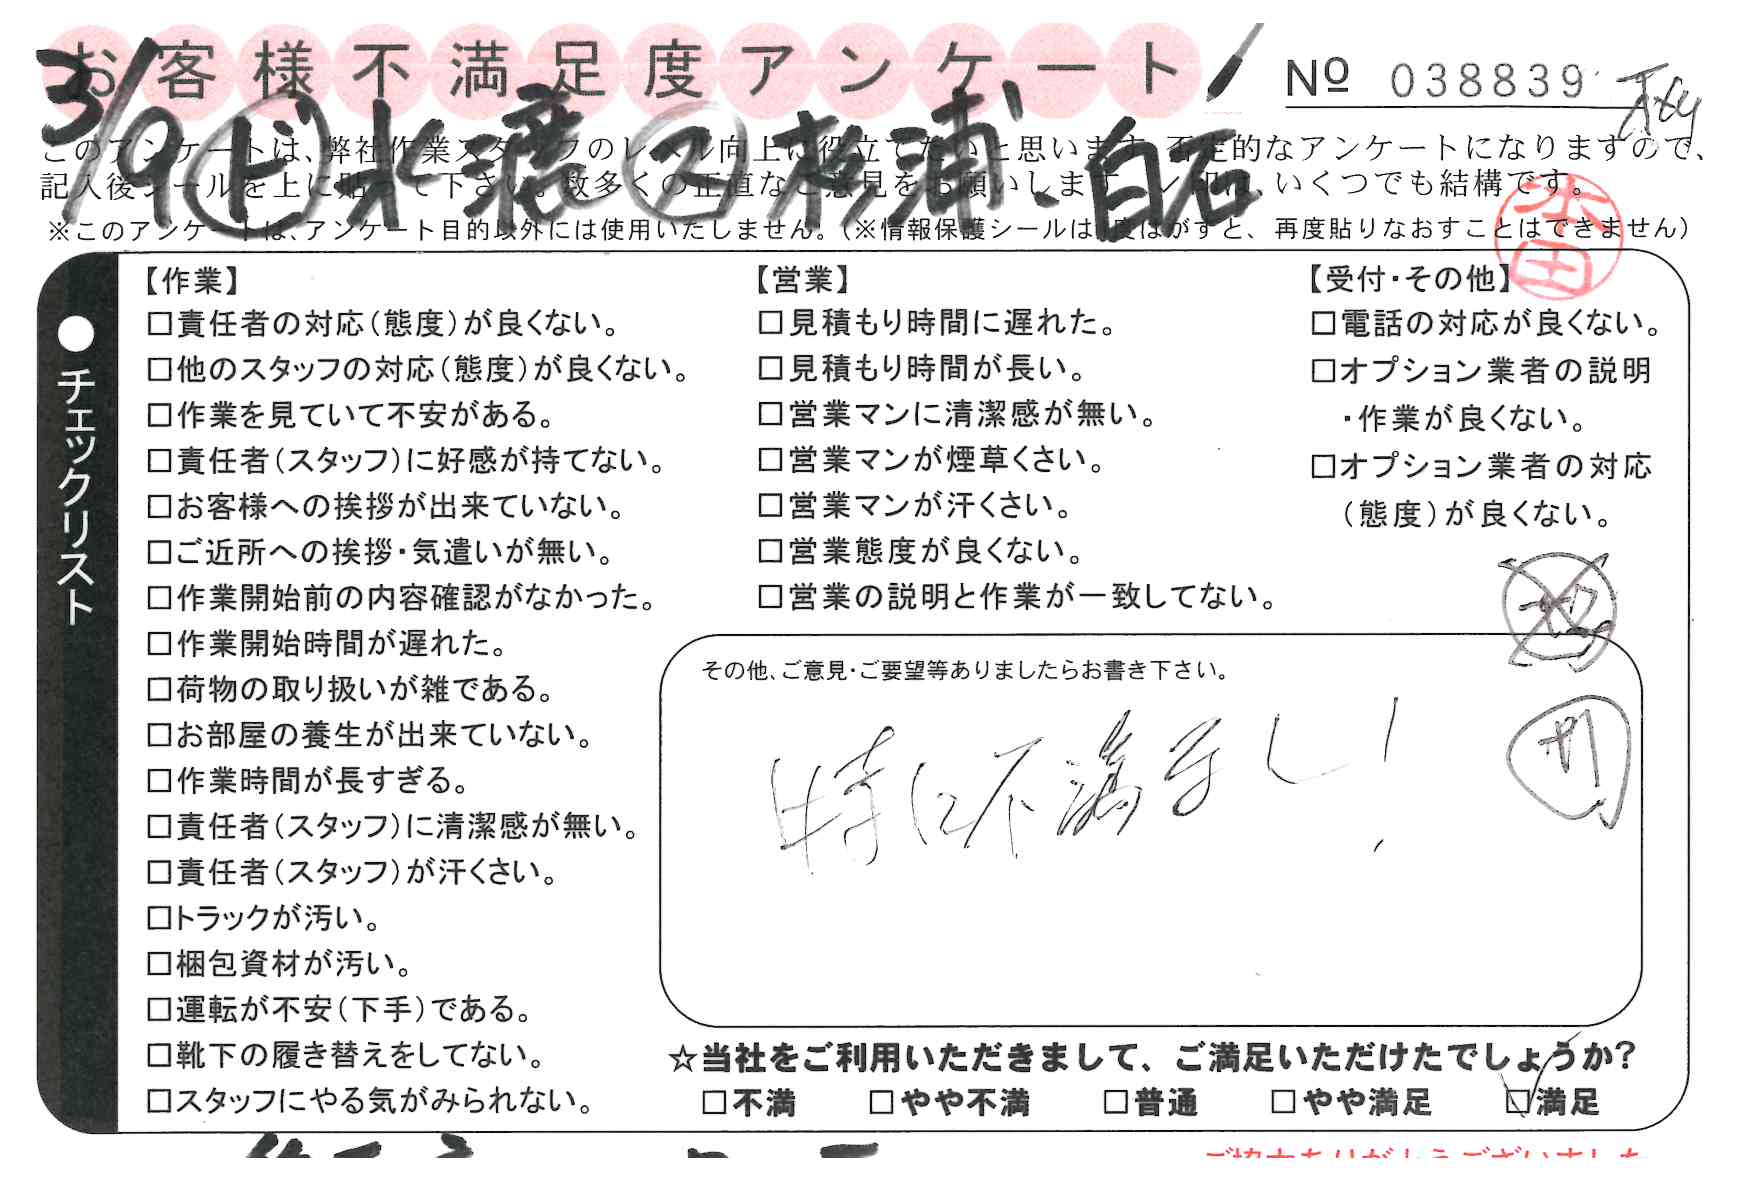 お客様不満足度アンケート
Nº 038839
3/9 ㋣ 水 ㋐ 杉浦、白石
このアンケートは、弊社作業スタッフのレベル向上に役立てたいと思います。否定的なアンケートになりますので、
記入後シールを上に貼って下さい。数多くの正直なご意見をお願いします。レ印は、いくつでも結構です。
※このアンケートは、アンケート目的以外には使用いたしません。(※情報保護シールは1度はがすと、再度貼りなおすことはできません)
本田
●チェックリスト
【作業】
□責任者の対応(態度)が良くない。
□他のスタッフの対応(態度)が良くない。
□作業を見ていて不安がある。
□責任者(スタッフ)に好感が持てない。
□お客様への挨拶が出来ていない。
□ご近所への挨拶・気遣いが無い。
□作業開始前の内容確認がなかった。
□作業開始時間が遅れた。
□荷物の取り扱いが雑である。
□お部屋の養生が出来ていない。
□作業時間が長すぎる。
□責任者(スタッフ)に清潔感が無い。
□責任者(スタッフ)が汗くさい。
□トラックが汚い。
□梱包資材が汚い。
□運転が不安(下手)である。
□靴下の履き替えをしてない。
□スタッフにやる気がみられない。
【営業】
□見積もり時間に遅れた。
□見積もり時間が長い。
□営業マンに清潔感が無い。
□営業マンが煙草くさい。
□営業マンが汗くさい。
□営業態度が良くない。
□営業の説明と作業が一致してない。
【受付・その他】
□電話の対応が良くない。
□オプション業者の説明
・作業が良くない。
□オプション業者の対応
(態度)が良くない。
その他、ご意見・ご要望等ありましたらお書き下さい。
特に不満なし!
☆当社をご利用いただきまして、ご満足いただけたでしょうか?
□不満 □やや不満 □普通 □やや満足 ☑満足
ご協力ありがとうございました